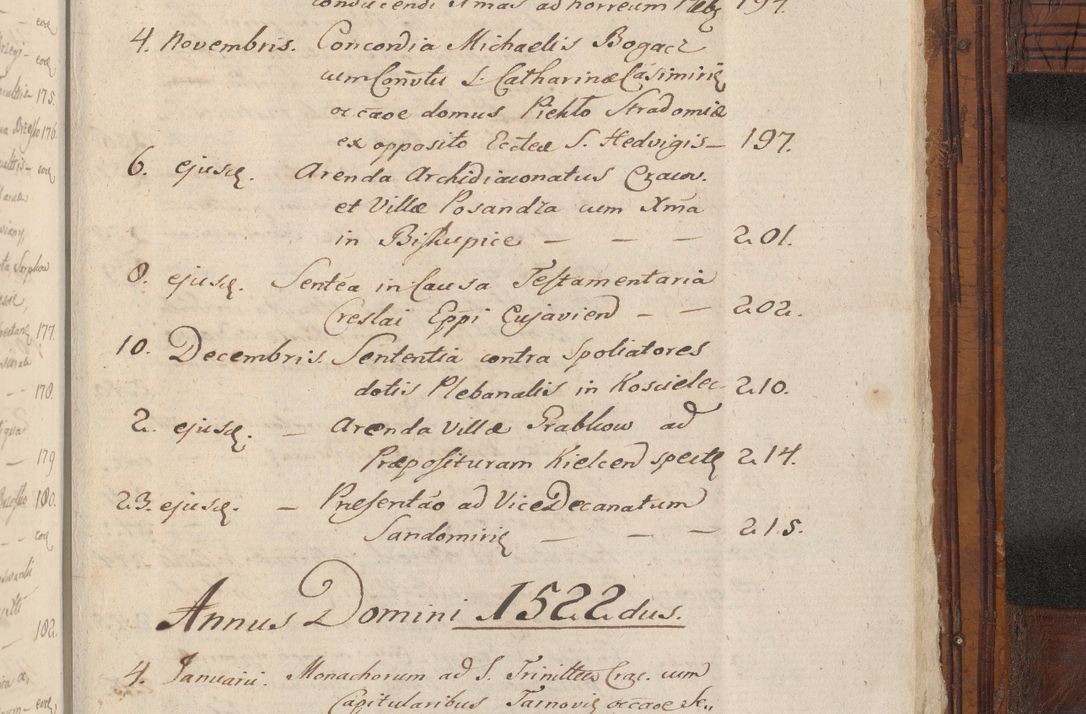 conducendi Xmas ad horreum Pleb 197.
4. Novembris. Concordia Michaelis Bogacz
cum Convtu S. Catharinæ Casimirię
occãoe domus Piekło Stradomiæ
ex opposito Ecclæ S. Hedvigis — 197.
6. ejusd. Arenda Archidiaconatus Cracov.
et Villæ Posandza cum Xma
in Biskupice — — — 201.
8. ejusd. Sentēa in Causa Testamentaria
Creslai Eppi Cujavien — — 202.
10. Decembris. Sententia contra Spoliatores
dotis Plebanalis in Koscielec 210.
2. ejusd. — Arenda Villæ Grabkow ad
Præposituram Kielcen spectę 214.
23. ejusd. — Præsentão ad ViceDecanatum
Sandomirię — — — 215.
Annus Domini 1522dus.
4. Januarii. Monachorum ad S. Crac. cum
Capitularibus Tarnovię occãoe
175.
176.
177.
178.
179
180.
182.